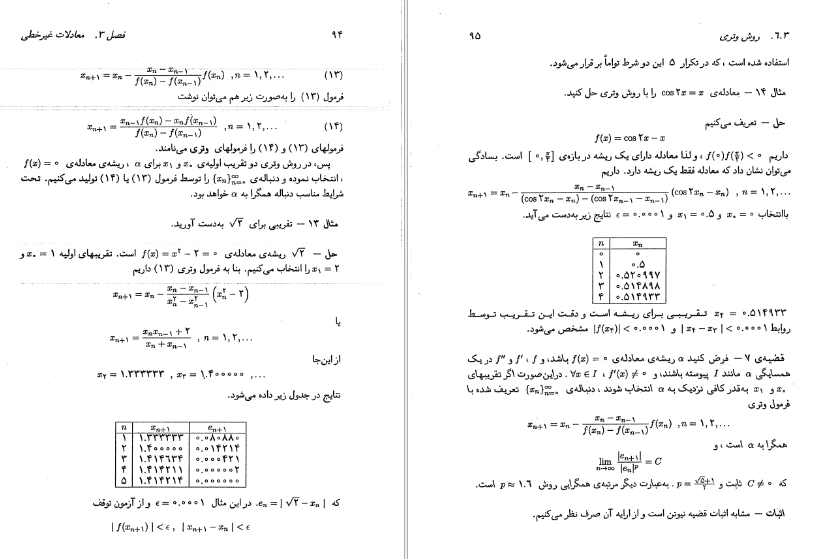 ۹۴ فصل ۳. معادلات غیرخطی
(۱۳) x_{n+۱} = x_n − \frac{x_n − x_{n−۱}}{f(x_n) − f(x_{n−۱})} f(x_n) , n = ۱, ۲, ...
فرمول (۱۳) را به‌صورت زیر هم می‌توان نوشت
(۱۴) x_{n+۱} = \frac{x_{n−۱}f(x_n) − x_n f(x_{n−۱})}{f(x_n) − f(x_{n−۱})} , n = ۱, ۲, ...
فرمولهای (۱۳) و (۱۴) را فرمولهای وتری می‌نامند.
پس، در روش وتری دو تقریب اولیه‌ی x_۰ و x_۱ برای α ، ریشه‌ی معادله‌ی f(x) = ۰
، انتخاب نموده و دنباله‌ی {x_n}_{n=۰}^∞ را توسط فرمول (۱۳) یا (۱۴) تولید می‌کنیم. تحت
شرایط مناسب دنباله همگرا به α خواهد بود.
مثال ۱۳ – تقریبی برای √۲ به‌دست آورید.
حل – √۲ ریشه‌ی معادله‌ی f(x) = x^۲ − ۲ = ۰ است. تقریبهای اولیه x_۰ = ۱ و
x_۱ = ۲ را انتخاب می‌کنیم. بنا به فرمول وتری (۱۳) داریم
x_{n+۱} = x_n − \frac{x_n − x_{n−۱}}{x_n^۲ − x_{n−۱}^۲} (x_n^۲ − ۲)
یا
x_{n+۱} = \frac{x_n x_{n−۱} + ۲}{x_n + x_{n−۱}} , n = ۱, ۲, ...
از این‌جا
x_۲ = ۱.۳۳۳۳۳۳ , x_۳ = ۱.۴۰۰۰۰۰ , ...
نتایج در جدول زیر داده می‌شود.
n x_{n+۱} e_{n+۱}
۱ ۱.۳۳۳۳۳۳ ۰.۰۸۰۸۸۰
۲ ۱.۴۰۰۰۰۰ ۰.۰۱۴۲۱۴
۳ ۱.۴۱۴۶۳۴ ۰.۰۰۰۴۲۱
۴ ۱.۴۱۴۲۱۱ ۰.۰۰۰۰۰۲
۵ ۱.۴۱۴۲۱۴ ۰.۰۰۰۰۰۰
که e_n = | √۲ − x_n |. در این مثال ε = ۰.۰۰۰۱ و از آزمون توقف
| f(x_{n+۱}) | < ε , | x_{n+۱} − x_n | < ε
۶.۳. روش وتری ۹۵
استفاده شده است ، که در تکرار ۵ این دو شرط تواماً بر قرار می‌شود.
مثال ۱۴ – معادله‌ی cos ۲x = x را با روش وتری حل کنید.
حل – تعریف می‌کنیم
f(x) = cos ۲x − x
داریم f(۰)f(\frac{π}{۴}) < ۰ ، و لذا معادله دارای یک ریشه در بازه‌ی [۰, \frac{π}{۴}] است. بسادگی
می‌توان نشان داد که معادله فقط یک ریشه دارد. داریم
x_{n+۱} = x_n − \frac{x_n − x_{n−۱}}{(cos ۲x_n − x_n) − (cos ۲x_{n−۱} − x_{n−۱})} (cos ۲x_n − x_n) , n = ۱, ۲, ...
باانتخاب x_۰ = ۰ و x_۱ = ۰.۵ و ε = ۰.۰۰۰۱ نتایج زیر به‌دست می‌آید.
n x_n
۰ ۰
۱ ۰.۵
۲ ۰.۵۲۰۹۹۷
۳ ۰.۵۱۴۸۹۸
۴ ۰.۵۱۴۹۳۳
x_۴ = ۰.۵۱۴۹۳۳ تقریبی برای ریشه است و دقت این تقریب توسط
روابط | x_۴ − x_۳ | < ۰.۰۰۰۱ و |f(x_۴)| < ۰.۰۰۰۱ مشخص می‌شود.
قضیه‌ی ۷ – فرض کنید α ریشه‌ی معادله‌ی f(x) = ۰ باشد، و f ، f′ و f″ در یک
همسایگی α مانند I پیوسته باشند، و ∀x ∈ I ، f′(x) ≠ ۰ . دراین‌صورت اگر تقریبهای
x_۰ و x_۱ به‌قدر کافی نزدیک به α انتخاب شوند ، دنباله‌ی {x_n}_{n=۰}^∞ تعریف شده با
فرمول وتری
x_{n+۱} = x_n − \frac{x_n − x_{n−۱}}{f(x_n) − f(x_{n−۱})} f(x_n) , n = ۱, ۲, ...
همگرا به α است ، و
lim_{n→∞} \frac{|e_{n+۱}|}{|e_n|^p} = C
که C ≠ ۰ ثابت و p = \frac{√۵+۱}{۲} . به‌عبارت دیگر مرتبه‌ی همگرایی روش p ≈ ۱.۶ است.
اثبات – مشابه اثبات قضیه نیوتن است و از ارایه آن صرف نظر می‌کنیم.